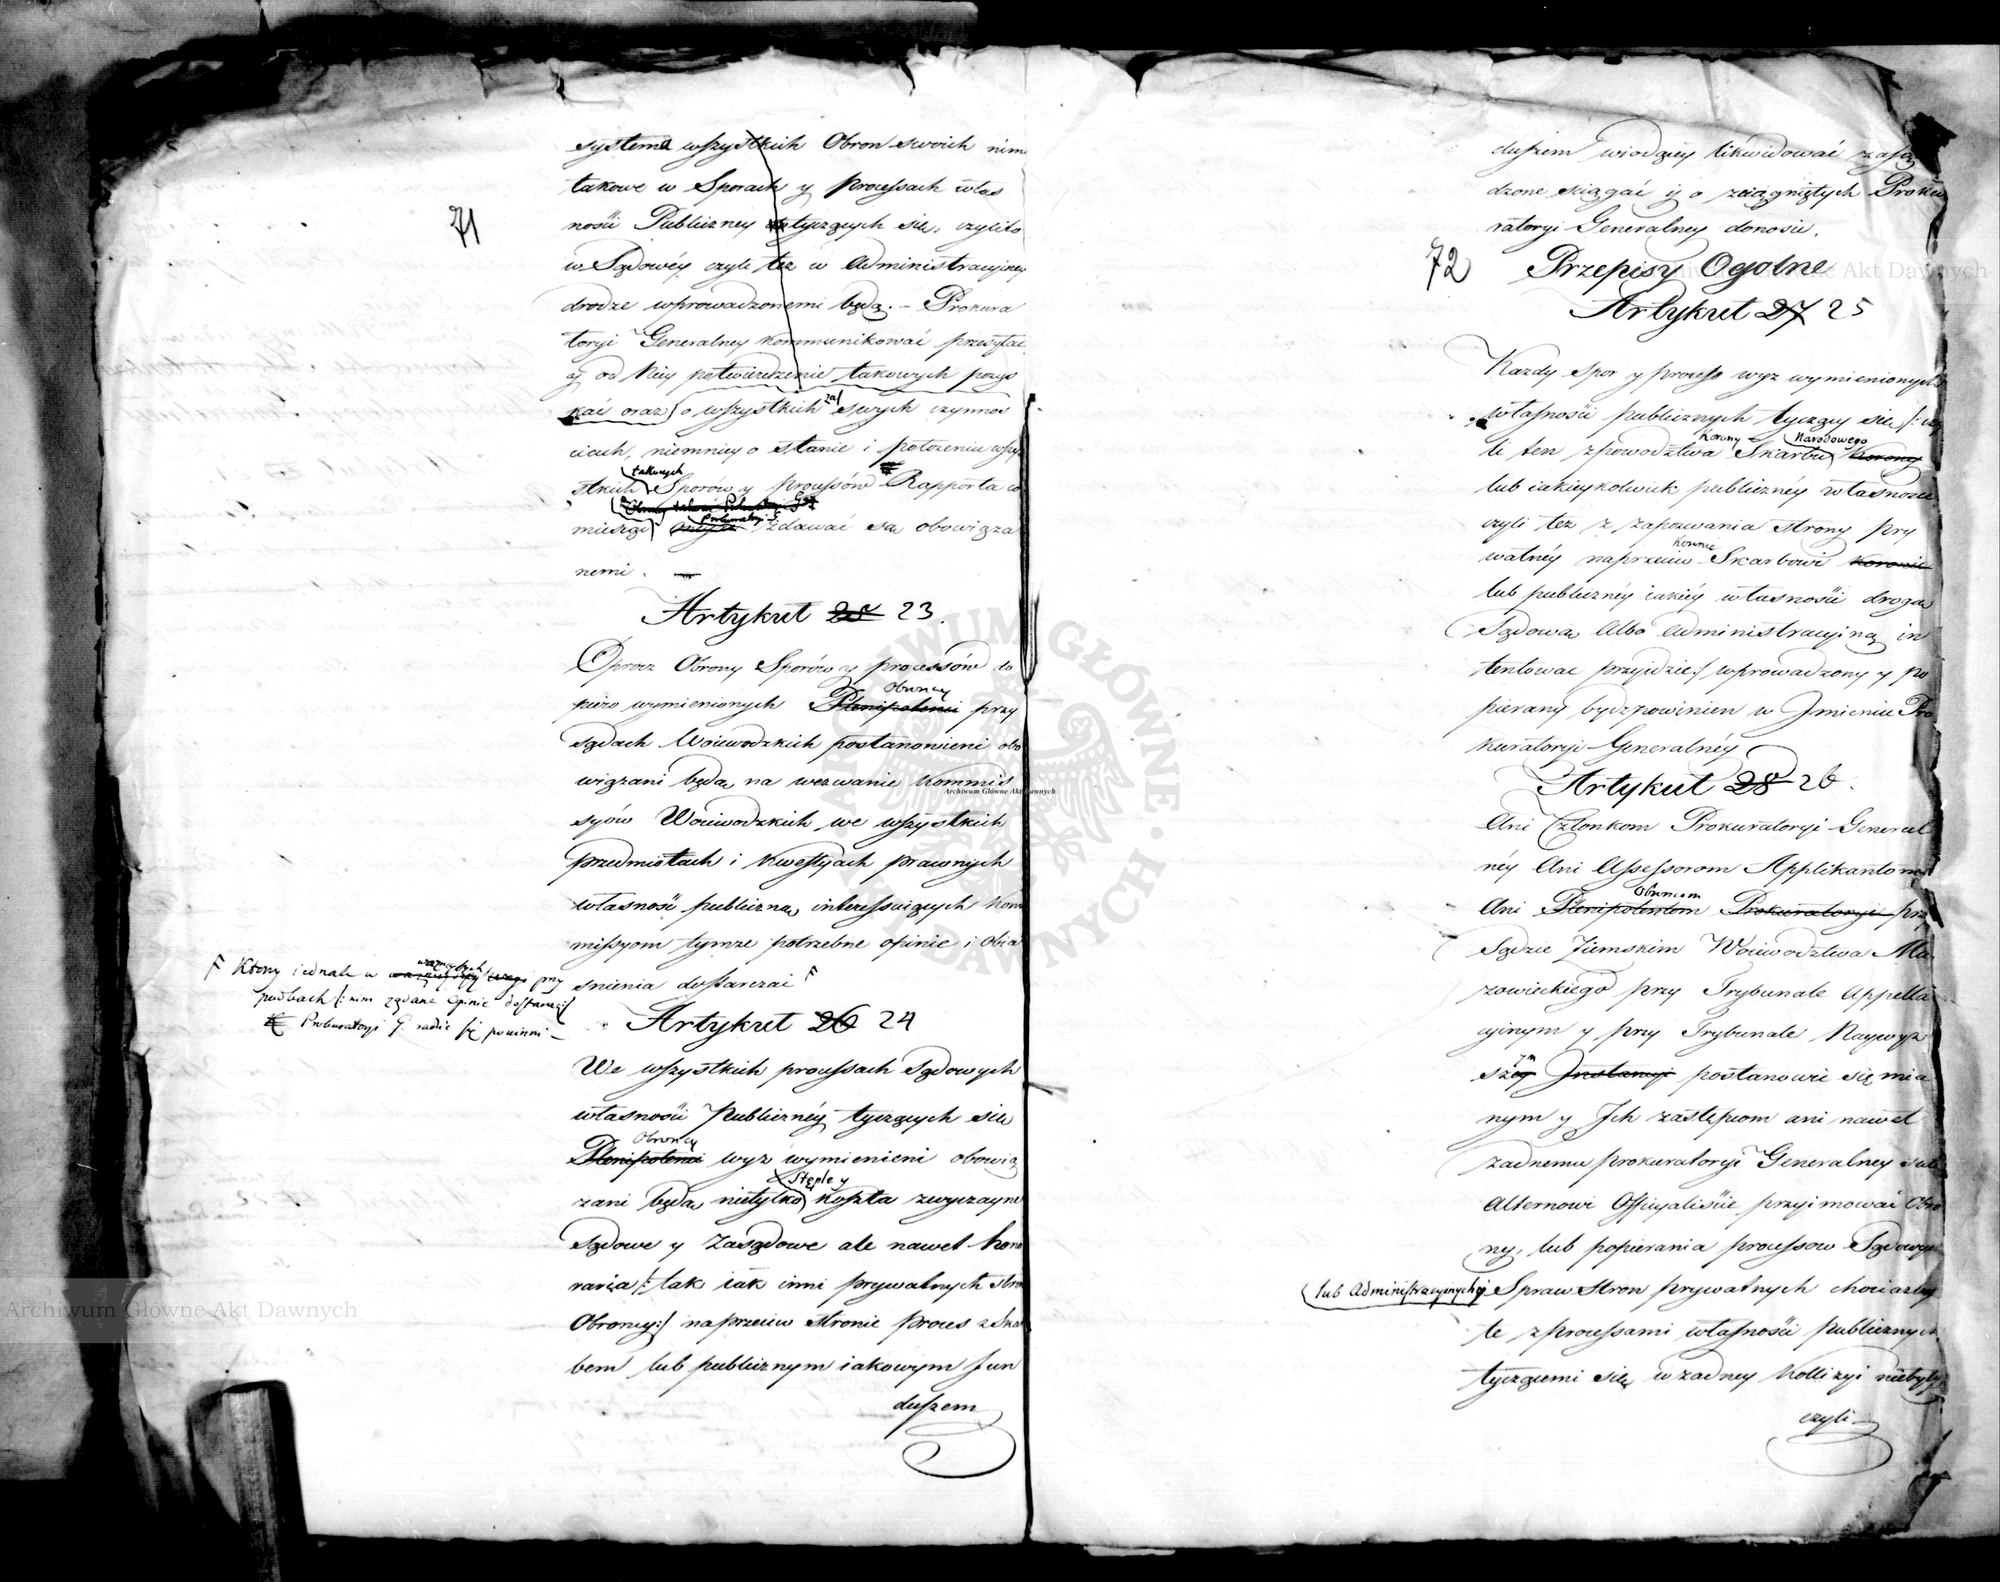 71
systema wszystkich Obron swoich nim
takowe w Sporach y Processach włas
ności Publiczney tyczących się, czyli to
w Sądowéy czyli też w Administracyiney
drodze wprowadzonemi będą. – Prokura
toryi Generalney kommunikować przesyłać
y od Niey potwierdzenie takowych pozys
kać oraz o wszystkich za swych czynnoś
ciach, niemniey o stanie i położeniu wszy
takowych
stkich Sporów y processów Rapporta co
Prokuratoryi G
miesiąc zdawać są obowiąza
nemi.
Artykuł 25 23.
Oprocz Obrony Sporów y processów do
Obrońcy
piero wymienionych Plenipotenci przy
sądach Woiewodzkich postanowieni obo
wiązani będą na wezwanie Kommis
syów Woiewodzkich we wszystkich
przedmiotach i kwestyach prawnych
własność publiczną interessuiących Kom
missyom tymże potrzebne opinie i obia
śnienia dostarczać F
F Ktorzy iednak w ważnych przy
padkach /: nim żądane opinie dostarczą :/
Prokuratoryi G. radzić się powinni –
Artykuł 26 24
We wszystkich processach Sądowych
własności Publicznéy tyczących się
Obrońcy
Plenipotenci wyż wymienieni obowią
Stęple y
zani będą nietylko koszta zwyczayne
Sądowe y Zasądowe ale nawet hono
raria /: tak iak inni prywatnych stron
Obrońcy :/ naprzeciw stronie proces z Skar
bem lub publicznym iakowym fun
duszem
duszem wiodącey likwidować zasą
dzone ściągać y o ściągniętych Proku
ratoryi Generalney donosić.
72 Przepisy Ogolne
Artykuł 27 25
Każdy spor y process wyż wymienionych
własności publicznych tyczący się /: czy
Korony – Narodowego
li ten z powodztwa Skarbu Korony
lub iakieykolwiek publicznéy własności
czyli też z zapozwania strony pry
Koronie
watnéy naprzeciw Skarbowi Koronie
lub publicznéy iakiey własności drogą
Sądową Albo Administracyiną in
tentować przyidzie :/ wprowadzony y po
pierany bydź powinien w Jmieniu Pro
kuratoryi Generalnéy
Artykuł 28 26.
Ani Członkom Prokuratoryi General
néy Ani Assessorom Applikantom
Obrońcom
Ani Plenipotentom Prokuratoryi przy
Sądzie Ziemskim Woiewodztwa Ma
zowieckiego przy Trybunale Appella
cyinym y przy Trybunale Naywyż
ym
szey Jnstancyi postanowić się mia
nym y Jch zastępcom ani nawet
żadnemu prokuratoryi Generalney sub
Alternowi Officyaliście przyimować Obro
ny, lub popierania processow Sądowych
lub Administracyinych y Spraw Stron prywatnych chociażby
te z processami własności publicznych
tyczącemi się w żadney kollizyi niebyły
czyli
Archiwum Główne Akt Dawnych